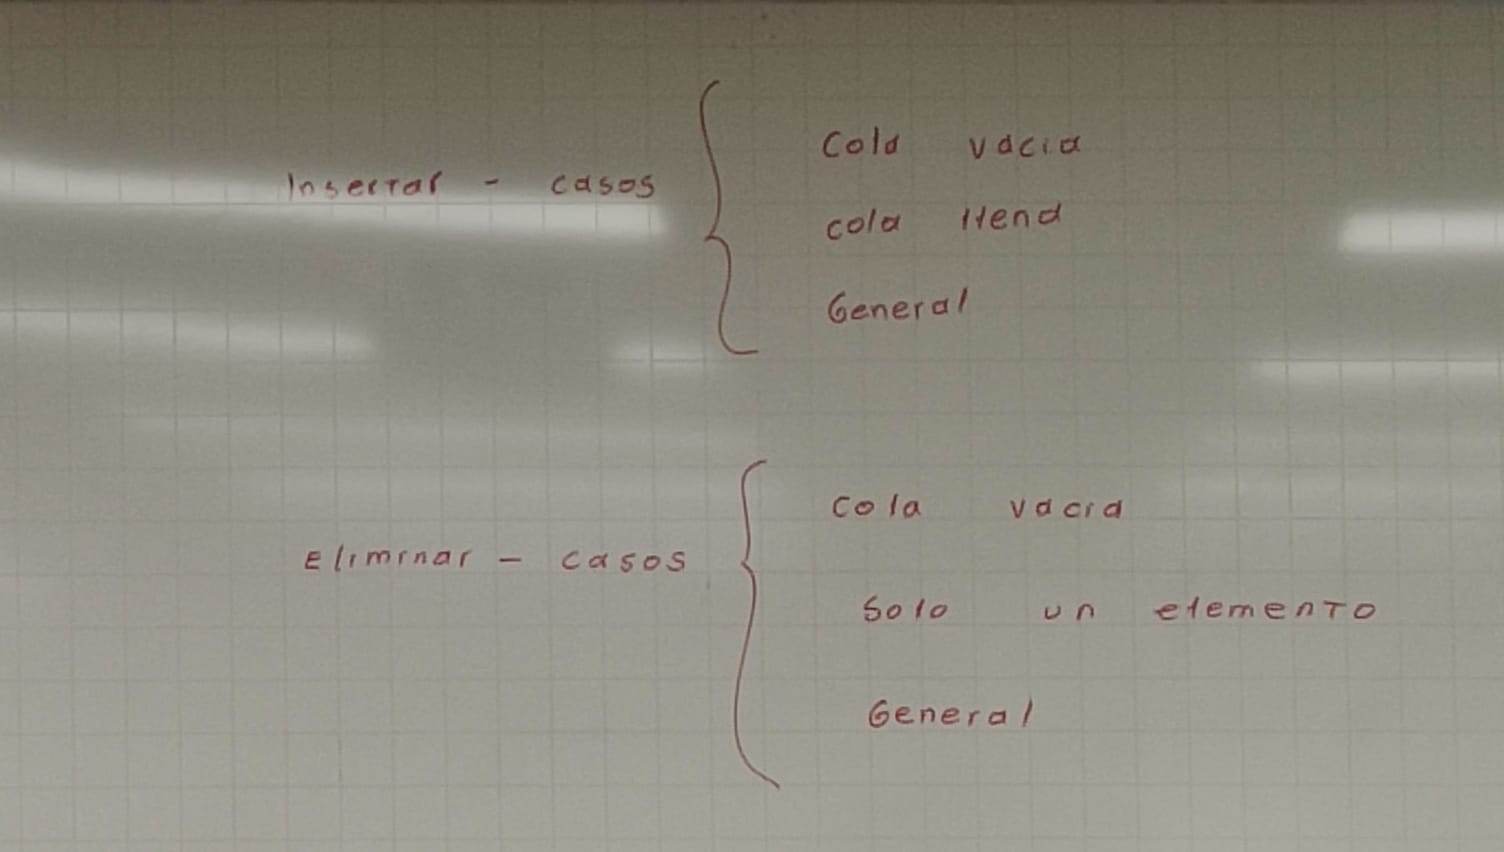 Insertar - casos
Cola vacia
cola llena
General
Eliminar - casos
Cola vacia
Solo un elemento
General